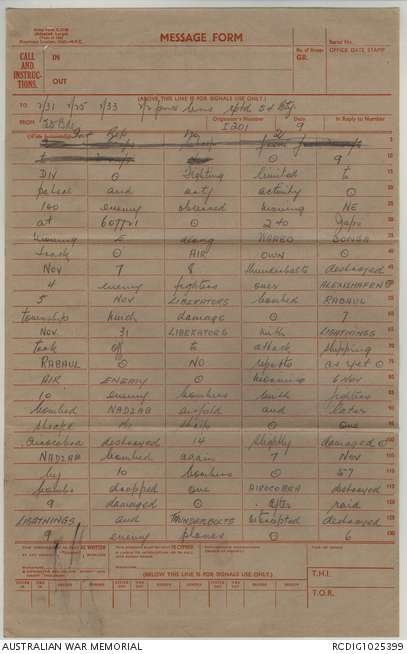 MESSAGE FORM
Serial No.
CALL AND INSTRUCTIONS.
IN
OUT
No. of Groups
GR.
OFFICE DATE STAMP
(ABOVE THIS LINE IS FOR SIGNALS USE ONLY.)
TO 2/31 2/25 2/33
FROM 25 Bde
Originator's Number
I201
Date
9
In Reply to Number
DIV ⊙ Fighting limited to
patrol and arty activity ⊙
100 enemy observed moving NE
at 607721 ⊙ 240 Japs
moving E along WAREO BONGA
track ⊙ AIR OWN ⊙
Nov 7 8 thunderbolts destroyed
4 enemy fighters over ALEXISHAFEN ⊙
5 Nov LIBERATORS bombed RABAUL
township much damage ⊙ 7
Nov 31 LIBERATORS with LIGHTNINGS
took off to attack shipping
RABAUL ⊙ NO reports as yet ⊙
AIR ENEMY ⊙ morning 6 Nov
10 enemy bombers with fighters
bombed NADZAB airfield and later
⊙ One
airacobra destroyed 14 slightly damaged ⊙
NADZAB bombed again 7 Nov
by 10 bombers ⊙ 57
bombs dropped one AIRCOBRA destroyed
9 damaged ⊙ After raid
LIGHTNINGS and THUNDERBOLTS intercepted destroyed
9 enemy planes ⊙ 6
(BELOW THIS LINE IS FOR SIGNALS USE ONLY.)
T.H.I.
T.O.R.
AUSTRALIAN WAR MEMORIAL
RCDIG1025399